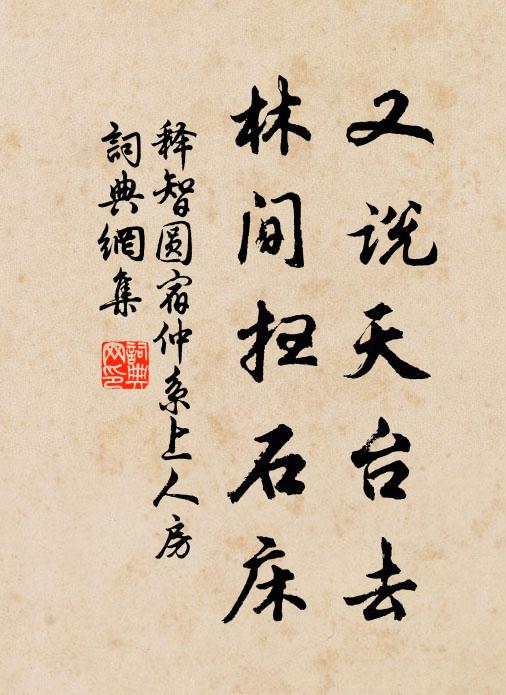 又说天台去
林间扫石床
释智圆宿仲系上人房
词典網集
詞典網印